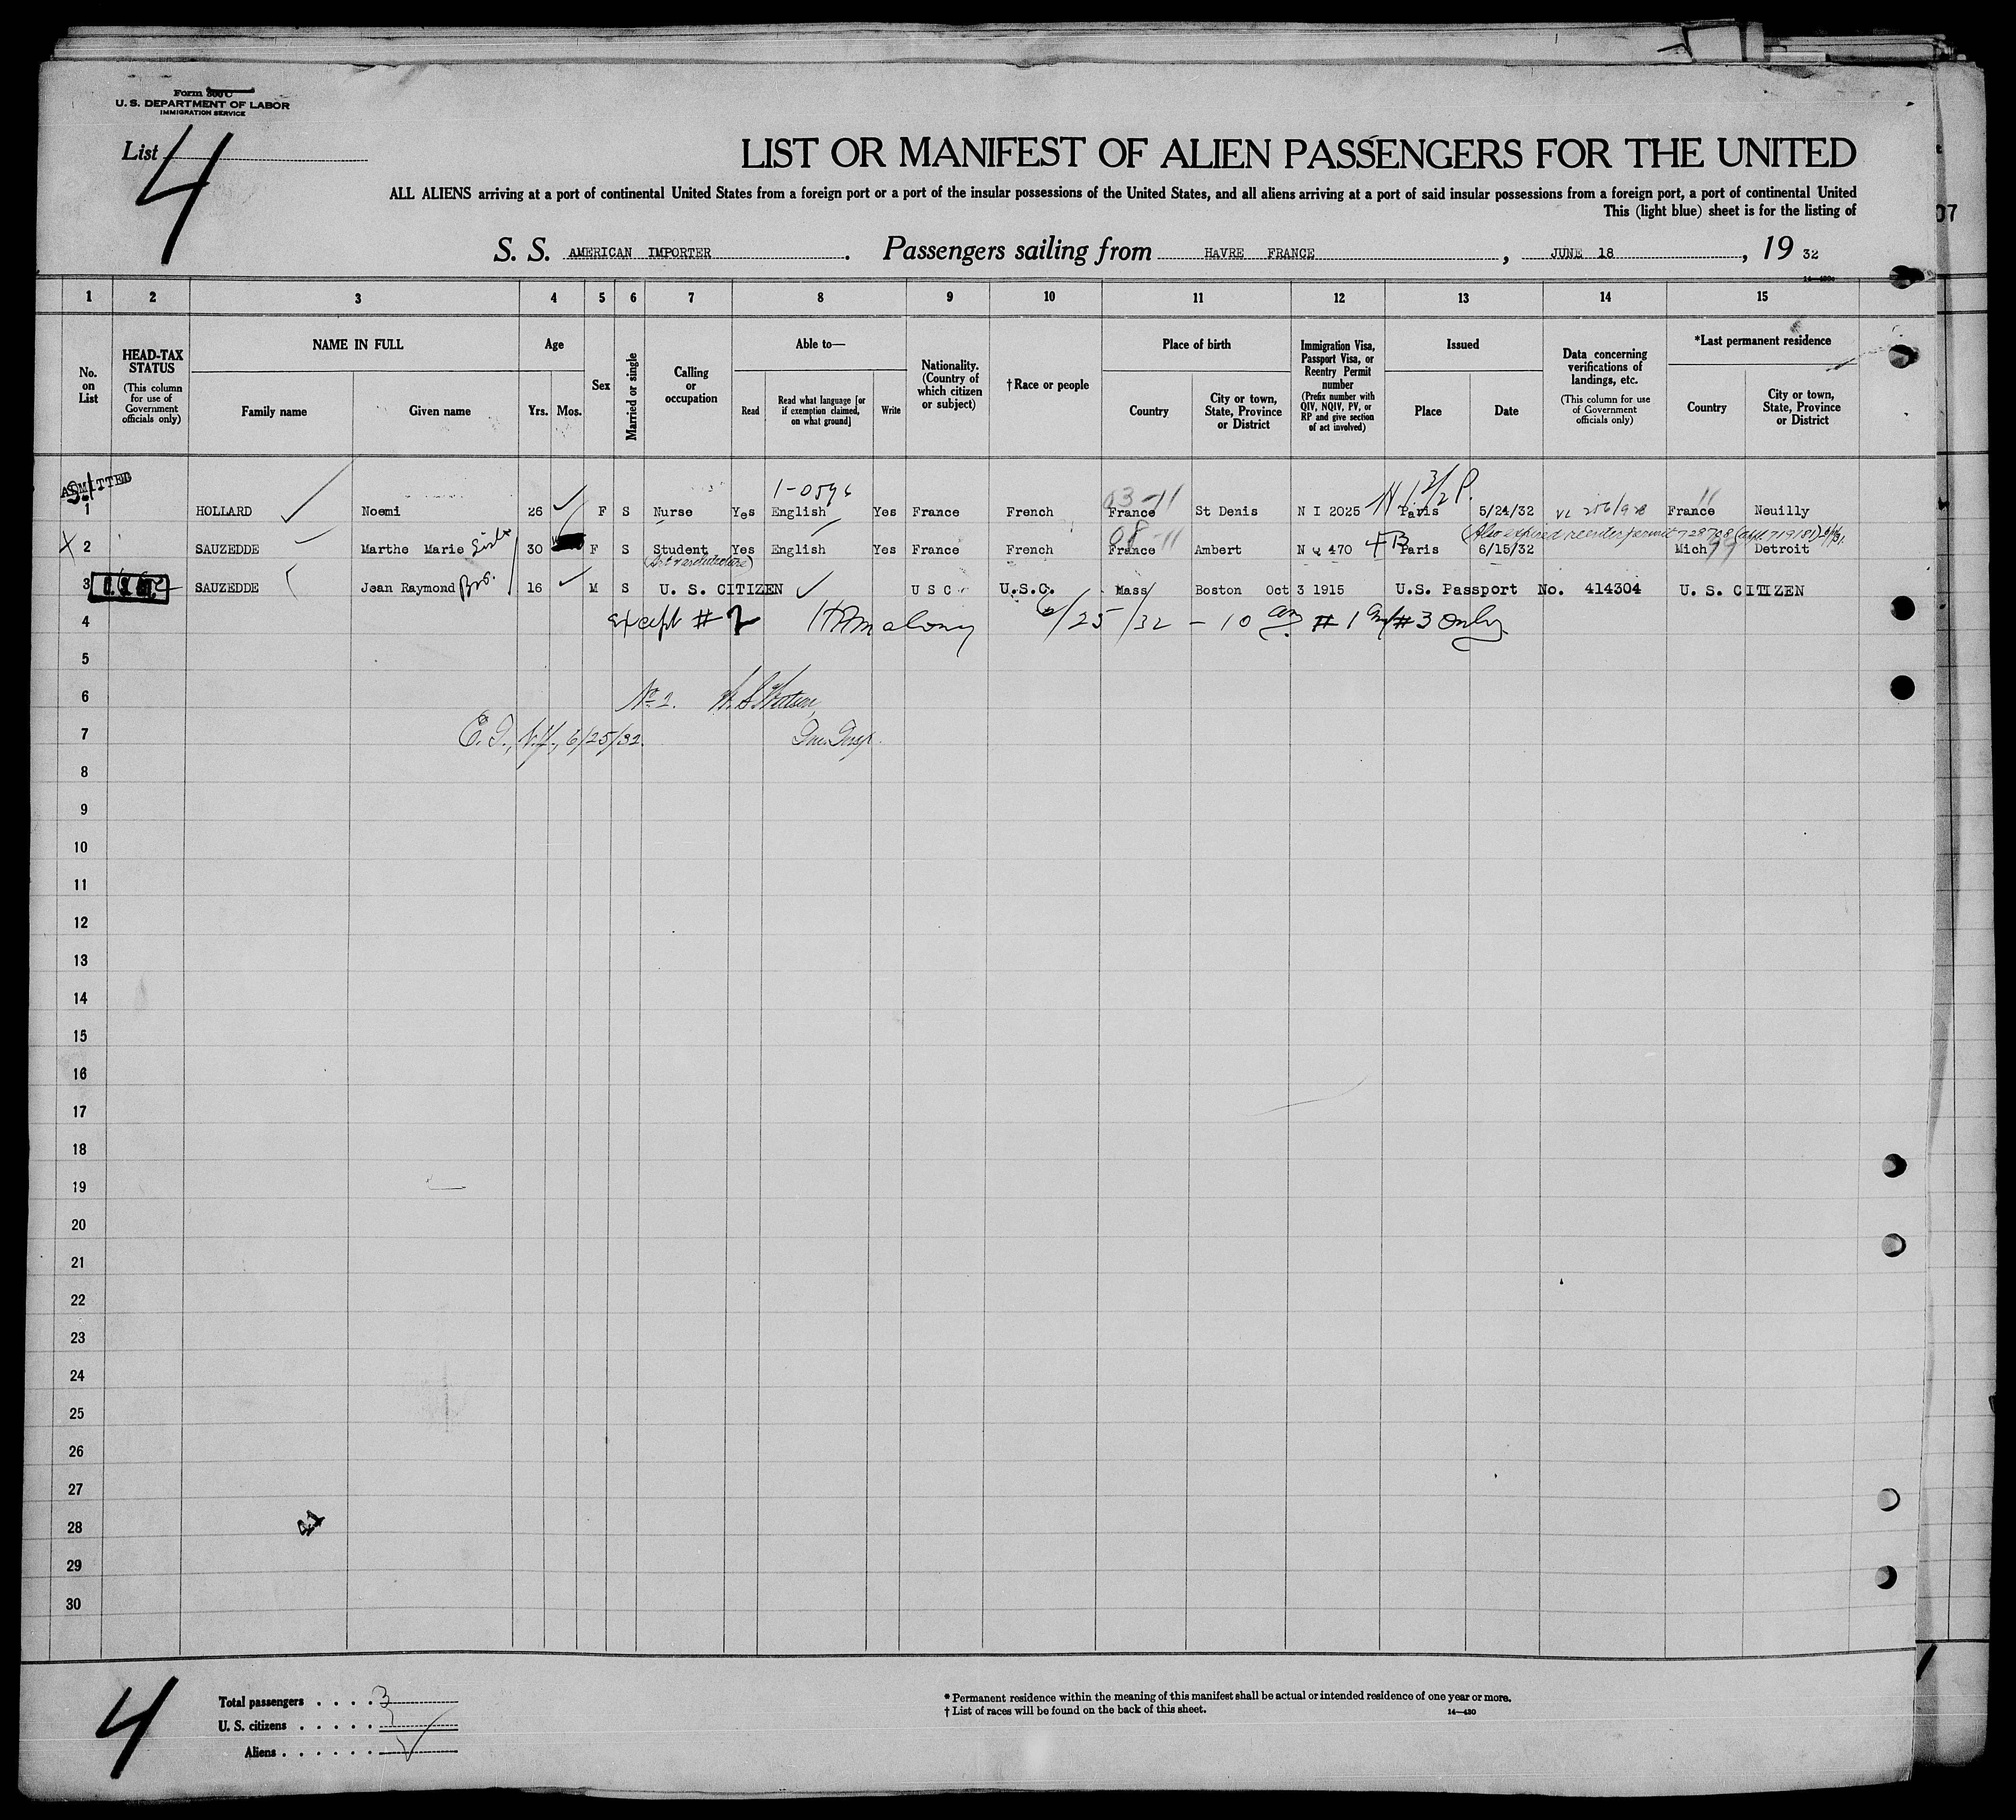 Form 500 C
U. S. DEPARTMENT OF LABOR
IMMIGRATION SERVICE
List 4
LIST OR MANIFEST OF ALIEN PASSENGERS FOR THE UNITED
ALL ALIENS arriving at a port of continental United States from a foreign port or a port of the insular possessions of the United States, and all aliens arriving at a port of said insular possessions from a foreign port, a port of continental United
This (light blue) sheet is for the listing of
07
S. S. AMERICAN IMPORTER. Passengers sailing from HAVRE FRANCE, JUNE 18, 19 32
1 2 3 4 5 6 7 8 9 10 11 12 13 14 15
No. on List
HEAD-TAX STATUS
(This column for use of Government officials only)
NAME IN FULL
Family name
Given name
Age
Yrs.
Mos.
Sex
Married or single
Calling or occupation
Able to—
Read
Read what language [or if exemption claimed, on what ground]
Write
Nationality. (Country of which citizen or subject)
†Race or people
Place of birth
Country
City or town, State, Province or District
Immigration Visa, Passport Visa, or Reentry Permit number
(Prefix number with QIV, NQIV, PV, or RP and give section of act involved)
Issued
Place
Date
Data concerning verifications of landings, etc.
(This column for use of Government officials only)
*Last permanent residence
Country
City or town, State, Province or District
ADMITTED
1-0596
03-11
1 HOLLARD Noemi 26 F S Nurse Yes English Yes France French France St Denis N I 2025 Paris 5/24/32 France Neuilly
08-11
(Also expired reentry permit 728708
X 2 SAUZEDDE Marthe Marie Sister 30 F S Student Yes English Yes France French France Ambert N Q 470 Paris 6/15/32 Mich 99 Detroit
3 SAUZEDDE Jean Raymond Bro. 16 M S U. S. CITIZEN U S C U.S.C. Mass Boston Oct 3 1915 U.S. Passport No. 414304 U. S. CITIZEN
4 except # 2 6/25/32 - 10 am # 1 and # 3 only
5
6 No 2.
7 E. I., N.Y., 6/25/32. Imm. Insp.
8
9
10
11
12
13
14
15
16
17
18
19
20
21
22
23
24
25
26
27
28
29
30
4
Total passengers . . . . 3
U. S. citizens . . . . .
Aliens . . . . . .
* Permanent residence within the meaning of this manifest shall be actual or intended residence of one year or more.
† List of races will be found on the back of this sheet. 14—430